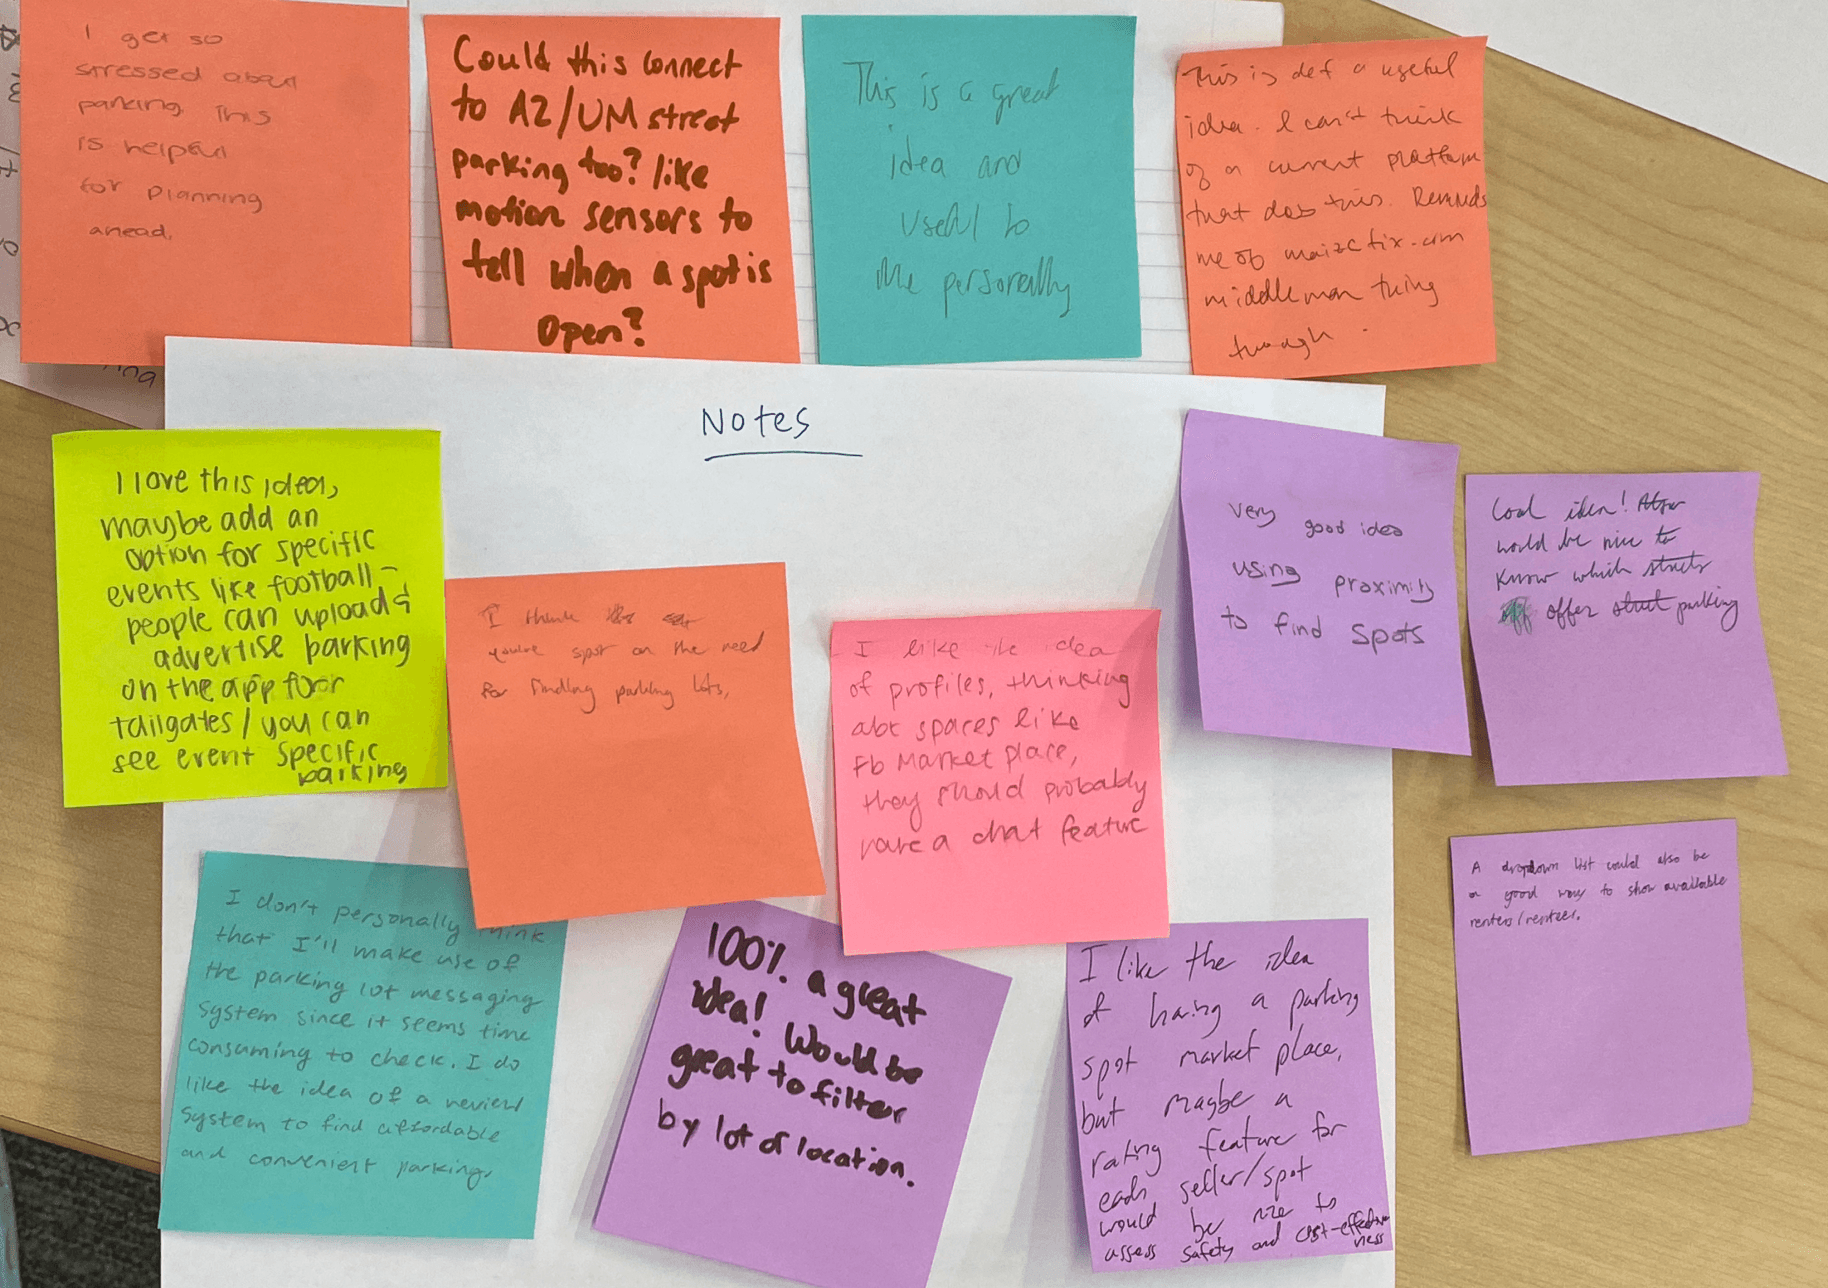 I get so
stressed about
parking. This
is helpful
for planning
ahead.
Could this connect
to A2/UM street
parking too? like
motion sensors to
tell when a spot is
open?
This is a great
idea and
useful to
me personally
This is def a useful
idea. I can't think
of a current platform
that does this. Reminds
me of maizetix.com
middleman thing
though.
Notes
I love this idea,
maybe add an
option for specific
events like football -
people can upload &
advertise parking
on the app for
tailgates / you can
see event specific
parking
I think
you're spot on the need
for finding parking lots,
I like the idea
of profiles, thinking
abt spaces like
Fb Market place,
they should probably
have a chat feature
very good idea
using proximity
to find spots
Cool idea! Also
would be nice to
know which streets
off offer street parking
A dropdown list could also be
a good way to show available
renters/rentees.
I don't personally think
that I'll make use of
the parking lot messaging
system since it seems time
consuming to check. I do
like the idea of a review
system to find affordable
and convenient parking.
100% a great
idea! Would be
great to filter
by lot or location.
I like the idea
of having a parking
spot market place,
but maybe a
rating feature for
each seller/spot
would be nice to
assess safety and cost-effective
ness